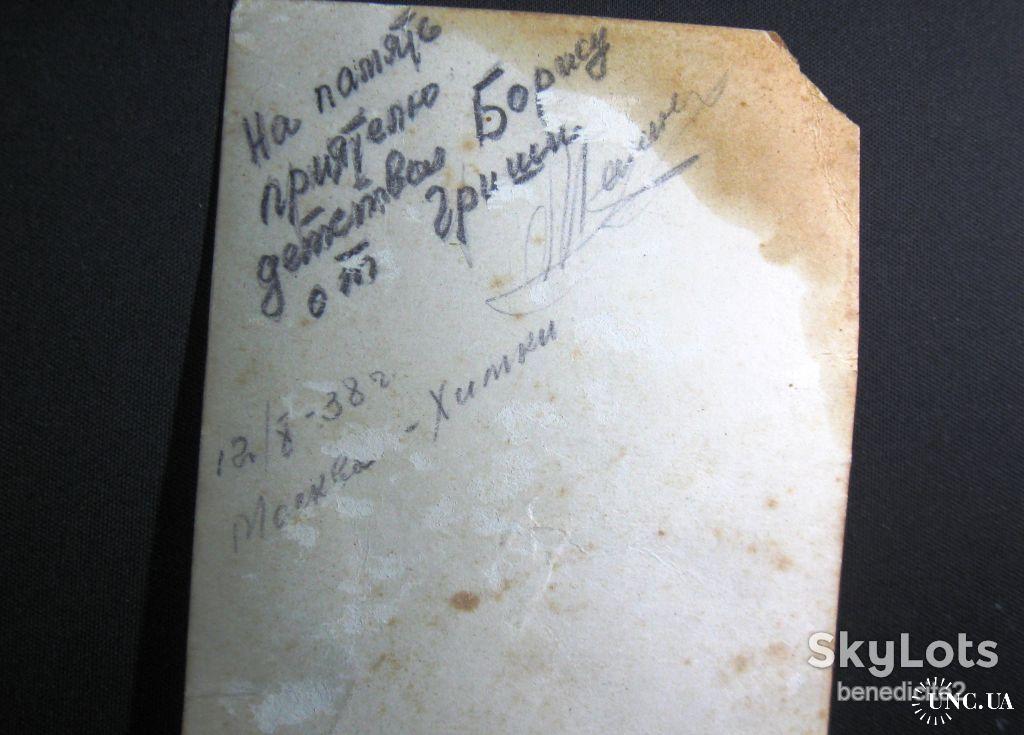 На память
приятелю
детства Борису
от Гриши.
12/X-38 г.
Москва - Химки
SkyLots
benedicite2
UNC.UA